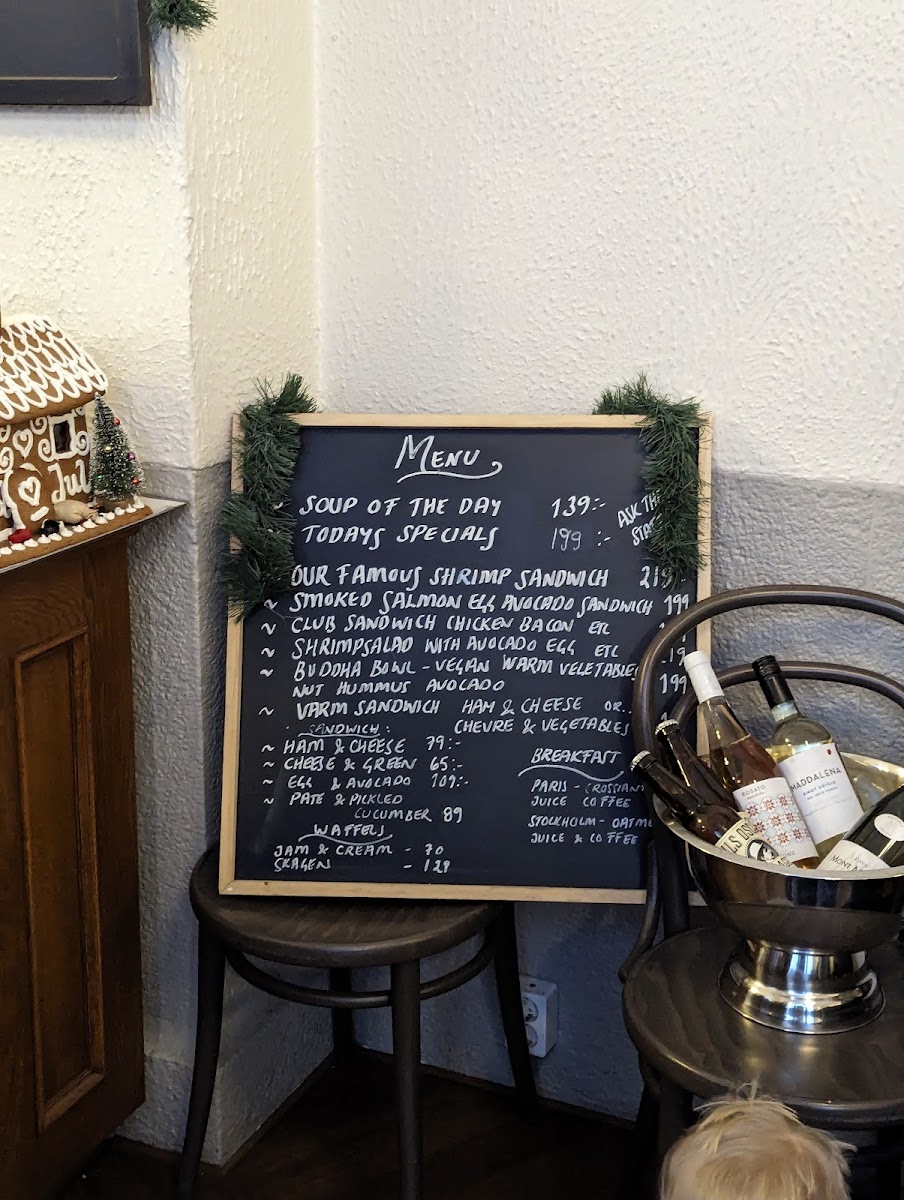 Jul
MENU
SOUP OF THE DAY 139:-
TODAYS SPECIALS 199:-
ASK THE
OUR FAMOUS SHRIMP SANDWICH
~ SMOKED SALMON EGG AVOCADO SANDWICH 199
~ CLUB SANDWICH CHICKEN BACON ETC
~ SHRIMPSALAD WITH AVOCADO EGG ETC
~ BUDDHA BOWL - VEGAN WARM VELETABLES
NUT HUMMUS AVOCADO 199
~ VARM SANDWICH HAM & CHEESE OR..
CHEVRE & VEGETABLES
SANDWICH:
~ HAM & CHEESE 79:-
~ CHEESE & GREEN 65:-
~ EGG & AVOCADO 109:-
~ PATE & PICKLED
CUCUMBER 89
WAFFELS
JAM & CREAM - 70
SKAGEN - 129
BREAKFAST
PARIS - CROSSIANT
JUICE COFFEE
STOCKHOLM - OATM
JUICE & COFFEE
ROSATO
MADDALENA
PINOT GRIGIO
MONT